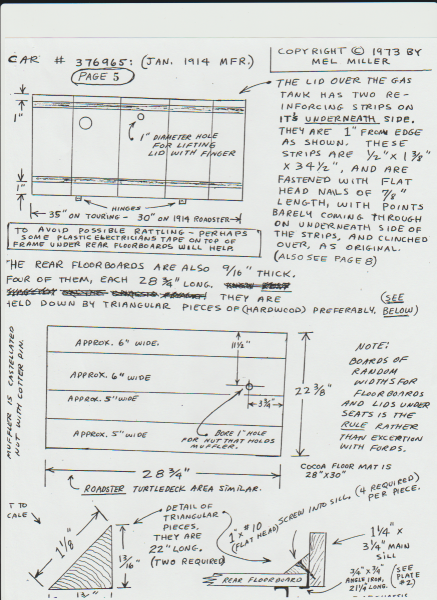 CAR # 376965: (JAN. 1914 MFR.)
PAGE 5
COPYRIGHT © 1973 BY
MEL MILLER
1"
1"
1" DIAMETER HOLE
FOR LIFTING
LID WITH FINGER
HINGES
35" ON TOURING - 30" ON 1914 ROADSTER
THE LID OVER THE GAS
TANK HAS TWO RE-
INFORCING STRIPS ON
IT'S UNDERNEATH SIDE.
THEY ARE 1" FROM EDGE
AS SHOWN. THESE
STRIPS ARE 1/2" X 1 3/8"
X 34 1/2", AND ARE
FASTENED WITH FLAT
HEAD NAILS OF 7/8"
LENGTH, WITH POINTS
BARELY COMING THROUGH
ON UNDERNEATH SIDE OF
THE STRIPS, AND CLINCHED
OVER, AS ORIGINAL.
(ALSO SEE PAGE 8)
TO AVOID POSSIBLE RATTLING - PERHAPS
SOME PLASTIC ELECTRICIANS TAPE ON TOP OF
FRAME UNDER REAR FLOORBOARDS WILL HELP.
HE REAR FLOORBOARDS ARE ALSO 9/16" THICK.
FOUR OF THEM, EACH 28 3/4" LONG.
THEY ARE
ELD DOWN BY TRIANGULAR PIECES OF (HARDWOOD) PREFERABLY. (SEE
BELOW)
MUFFLER IS CASTELLATED
NOT WITH COTTER PIN.
APPROX. 6" WIDE.
APPROX. 6" WIDE
APPROX. 5" WIDE
APPROX. 5" WIDE
11 1/2"
3 3/4"
BORE 1" HOLE
FOR NUT THAT HOLDS
MUFFLER.
22 3/8"
28 3/4"
ROADSTER TURTLEDECK AREA SIMILAR.
NOTE:
BOARDS OF
RANDOM
WIDTHS FOR
FLOORBOARDS
AND LIDS UNDER
SEATS IS THE
RULE RATHER
THAN EXCERTION
WITH FORDS.
COCOA FLOOR MAT IS
28" X 30"
T TO
CALE
1 1/8"
13/16"
DETAIL OF
TRIANGULAR
PIECES.
THEY ARE
22" LONG.
(TWO REQUIRED)
1" X #10
(FLAT HEAD) SCREW INTO SILL. (4 REQUIRED)
PER PIECE.
REAR FLOORBOARD
1 1/4" X
3 1/4" MAIN
SILL
3/4" X 3/4"
ANGLE IRON,
21 1/2 LONG.
(SEE
PLATE
#2)